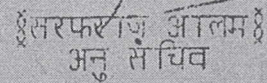 सरफराज़ आलम
अनु सचिव